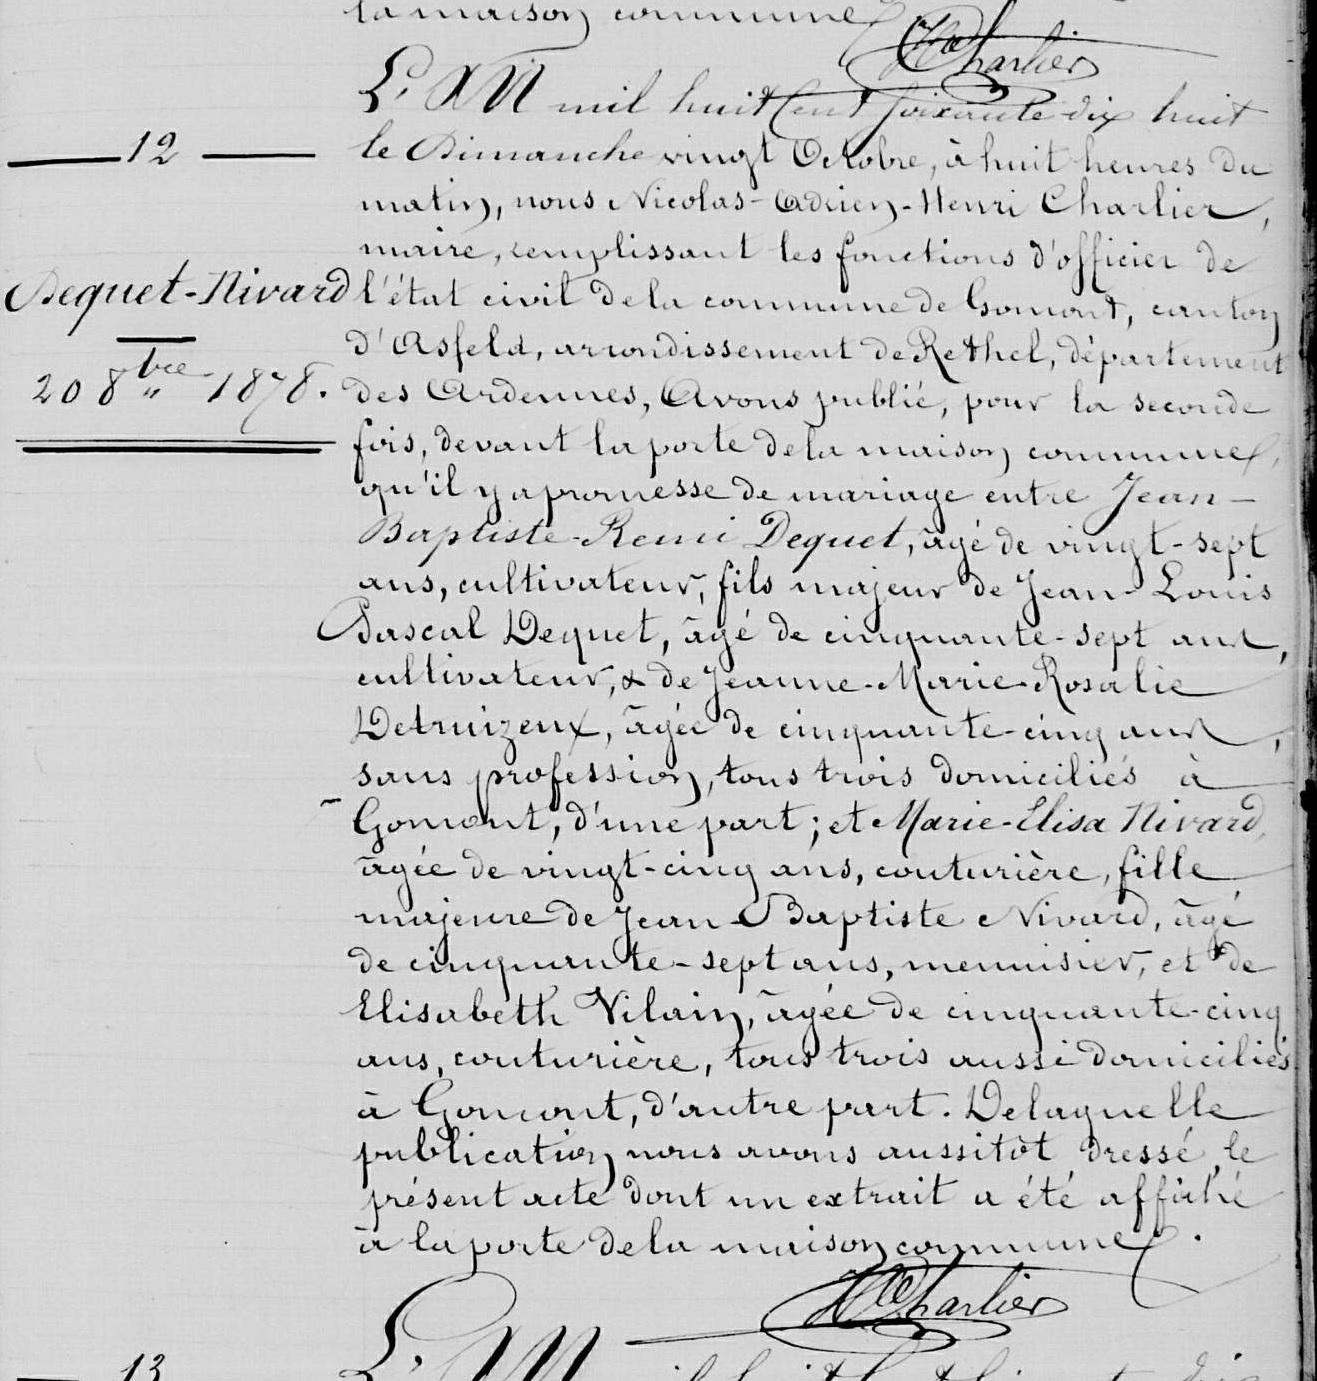 la maison commune
HCharlier
L'AN mil huit Cent soixante-dix huit
— 12 —
le Dimanche vingt Octobre, à huit heures du
matin, nous Nicolas-Adrien-Henri Charlier,
maire, remplissant les fonctions d'officier de
Dequet-Nivard
l'état civil de la commune de Gomont, canton
d'Asfeld, arrondissement de Rethel, département
20 8bre 1878.
des Ardennes, Avons publié, pour la seconde
fois, devant la porte de la maison commune,
qu'il y a promesse de mariage entre Jean-
Baptiste-Remi Dequet, âgé de vingt-sept
ans, cultivateur, fils majeur de Jean-Louis
Pascal Dequet, âgé de cinquante-sept ans,
cultivateur, & de Jeanne-Marie-Rosalie
Detruizeux, âgée de cinquante-cinq ans,
sans profession, tous trois domiciliés à
Gomont, d'une part; et Marie-Elisa Nivard,
âgée de vingt-cinq ans, couturière, fille
majeure de Jean-Baptiste Nivard, âgé
de cinquante-sept ans, menuisier, et de
Elisabeth Vilain, âgée de cinquante-cinq
ans, couturière, tous trois aussi domiciliés
à Gomont, d'autre part. De laquelle
publication nous avons aussitôt dressé le
présent acte dont un extrait a été affiché
à la porte de la maison commune.
HCharlier
13
L'AN